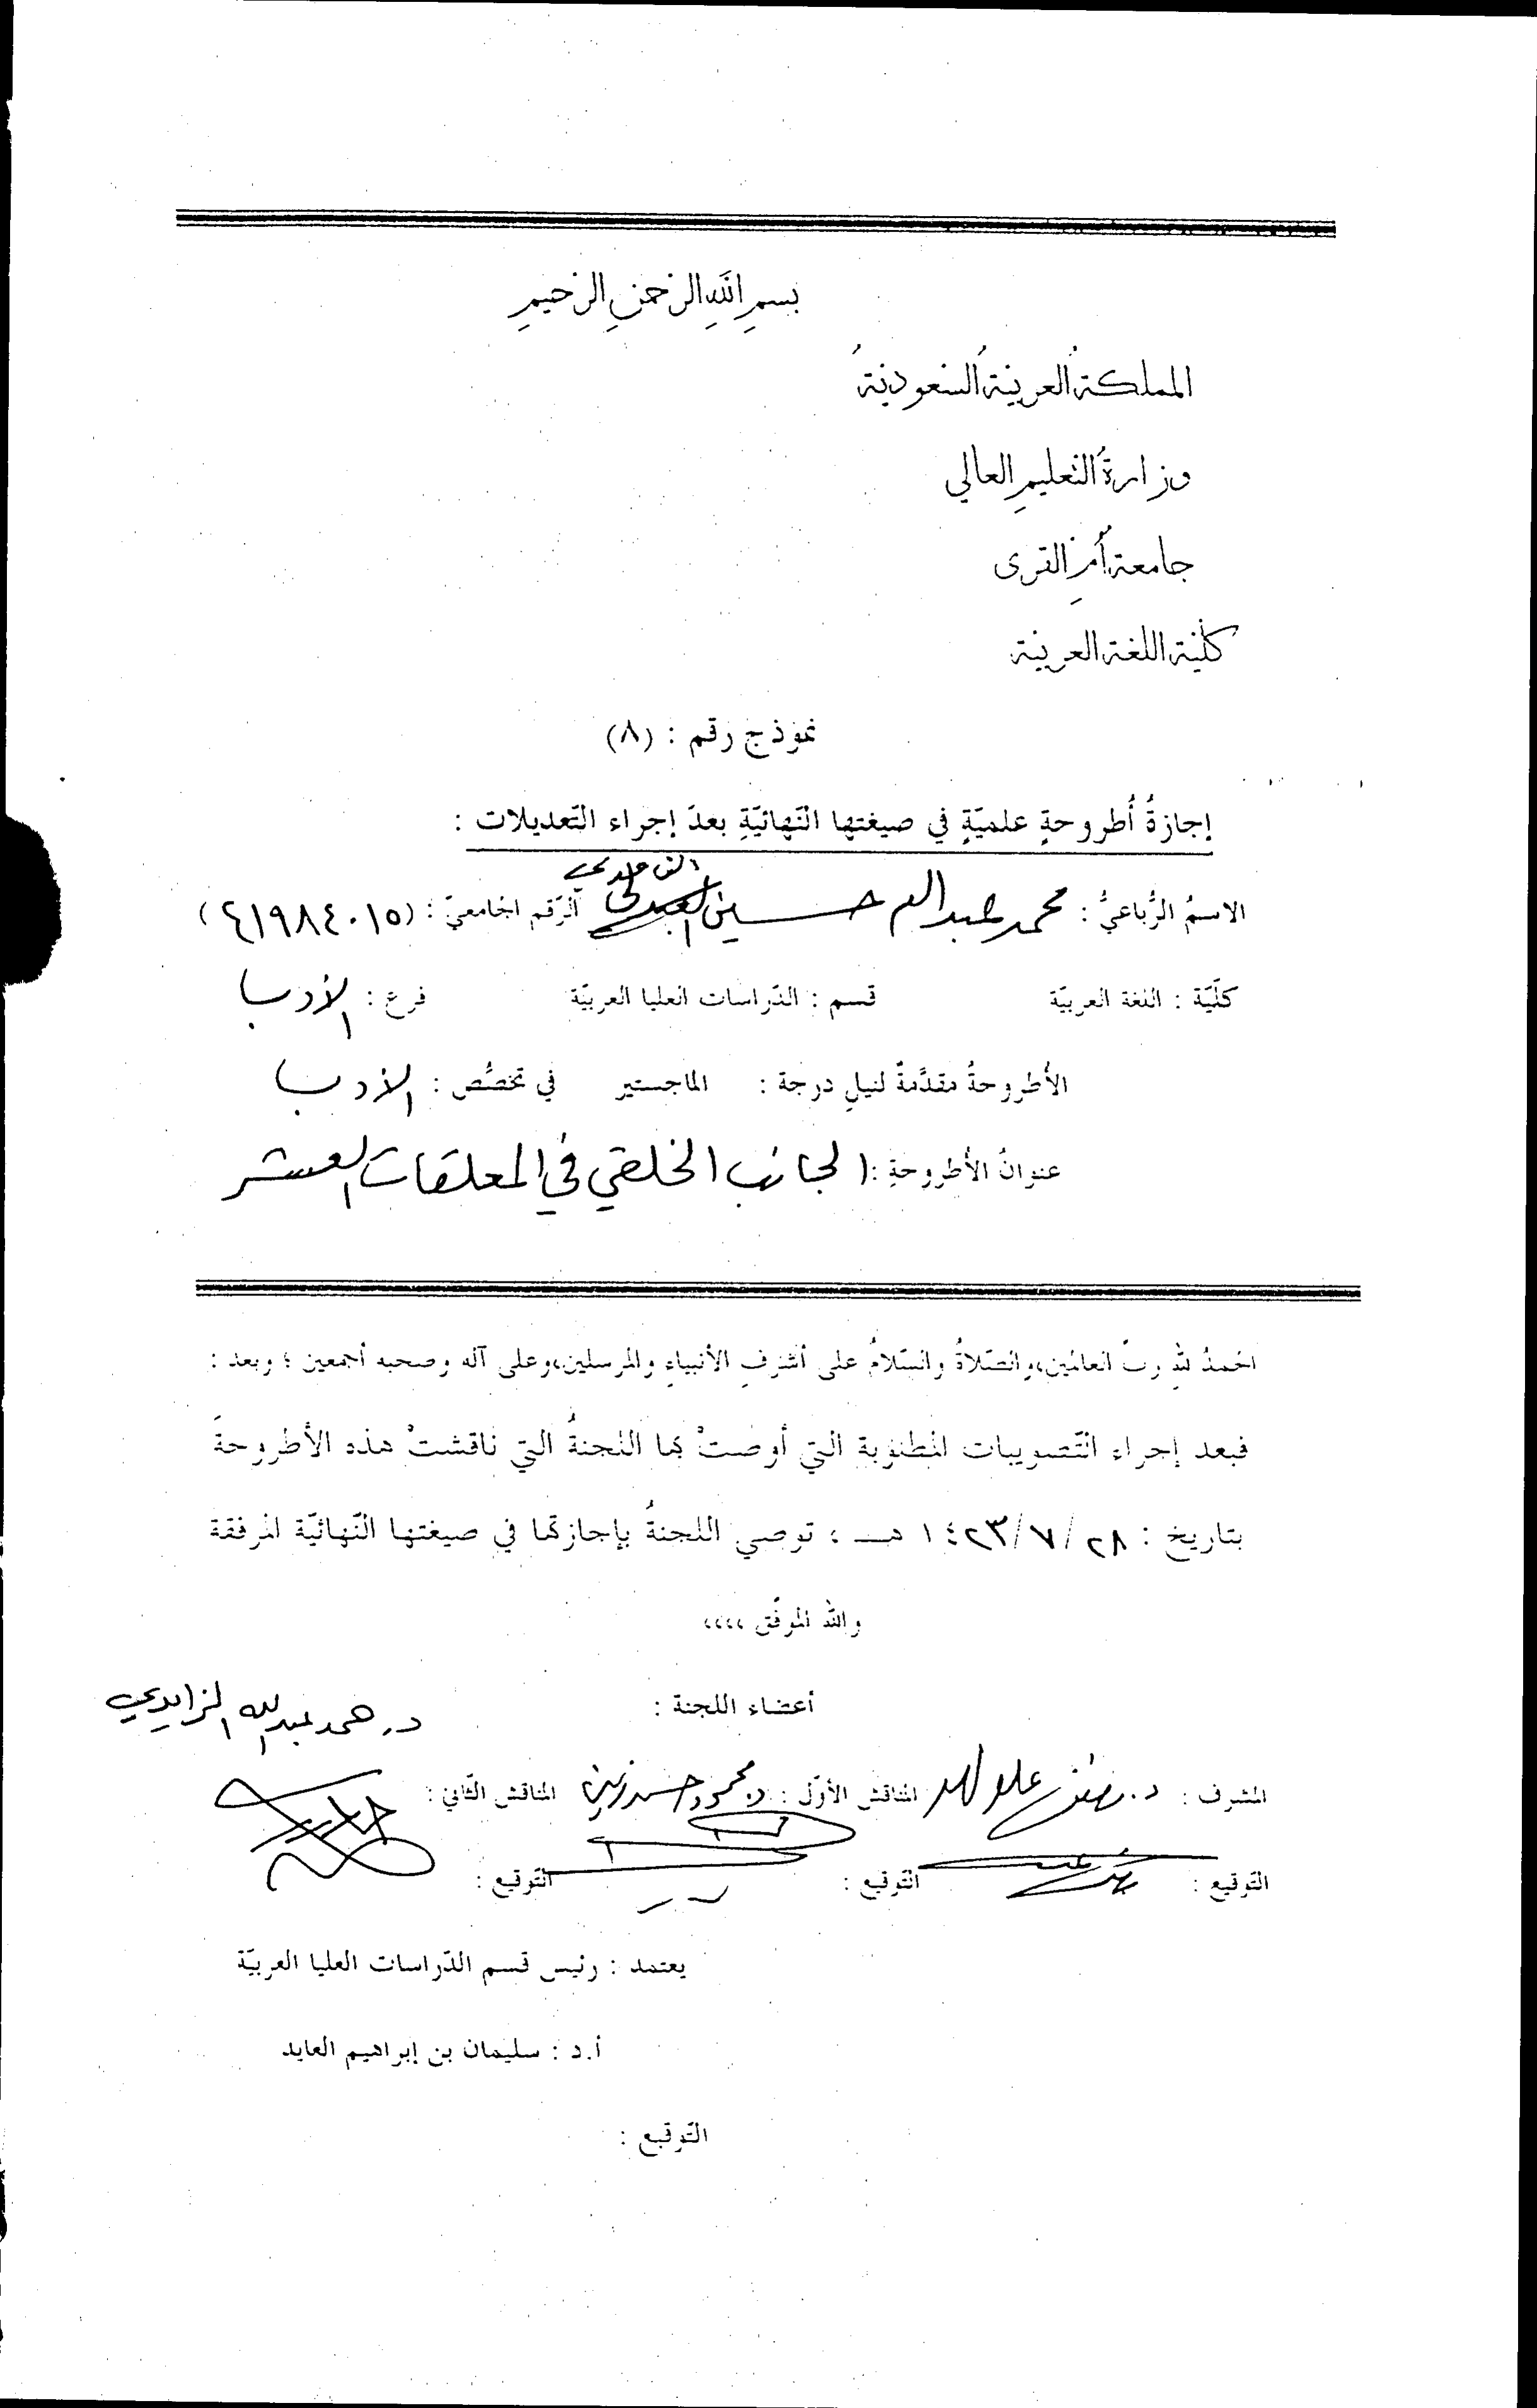 بسمِ اللهِ الرّحمنِ الرّحيمِ
المملكةُ العربيّةُ السّعوديّةُ
وزارةُ التّعليمِ العالي
جامعةُ أمِّ القرى
كلّيّة اللغة العربيّة
نموذج رقم : (٨)
إجازةُ أُطروحةٍ علميّةٍ في صيغتها النّهائيّةِ بعدَ إجراء التّعديلات :
الاسمُ الرُّباعيُّ : محمد عبدالله حسين العبدلي الرّقم الجامعيّ : (٤١٩٨٤٠١٥)
كلّيّة : اللغة العربيّة قسم : الدّراسات العليا العربيّة فرع : الأدب
الأطروحةُ مقدَّمةٌ لنيلِ درجة : الماجستير في تخصُّص : الأدب
عنوانُ الأطروحةِ : الجانب الخلقي في المعلقات العشر
الحمدُ للهِ ربّ العالمين، والصّلاةُ والسّلامُ على أشرفِ الأنبياءِ والمرسلين، وعلى آله وصحبه أجمعين ؛ وبعد :
فبعد إجراء التّصويبات المطلوبة التي أوصتْ بها اللجنةُ التي ناقشتْ هذه الأطروحةَ
بتاريخ : ٢٨ / ٧ / ١٤٢٣ هـ ، توصي اللجنةُ بإجازتها في صيغتها النّهائيّة المرفقة
والله الموفّق ،،،،
أعضاء اللجنة :
د. حمد عبدالله الزايدي
المشرف : د. المناقش الأوّل : د. محمود حسن زيني المناقش الثّاني :
التّوقيع : التّوقيع : التّوقيع :
يعتمد : رئيس قسم الدّراسات العليا العربيّة
أ.د : سليمان بن إبراهيم العايد
التّوقيع :